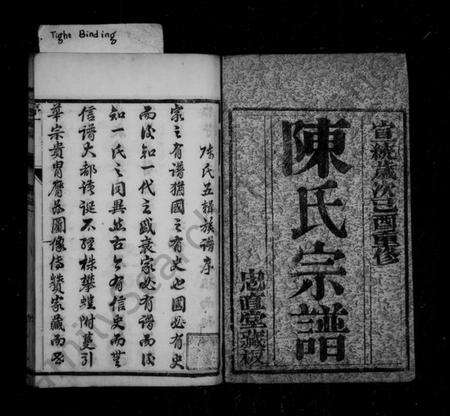 Tight Binding
宣統歲次己酉重修
陳氏宗譜
忠直堂藏板
陳氏五楫族譜序
家之有譜猶國之有史也國必有史
而後知一代之盛衰家必有譜而後
知一氏之同異然古今有信史而無
信譜大都誇誕不經株攀蔓附蔓引
華宗貴胄歷品圖像傳贊家藏而